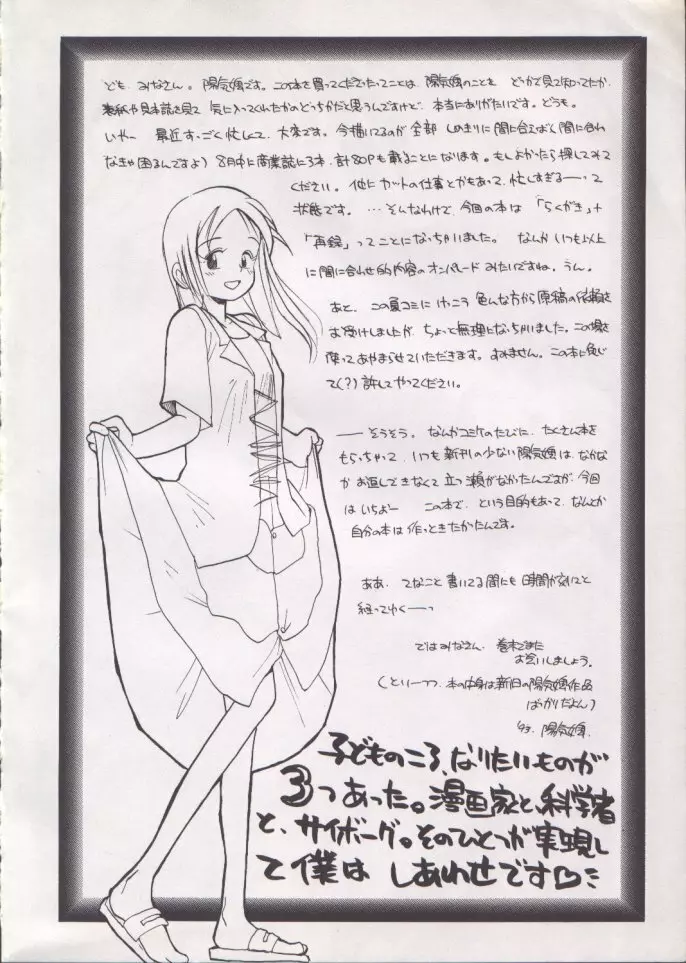 ども、みなさん。陽気婢です。この本を買ってくださったってことは、陽気婢のことを どっかで見て知ってたか、
表紙や見本誌を見て 気に入ってくれたかのどっちかだと思うんですけど、本当にありがたいです。どうも。
いやー 最近すっごく忙しくて、大変です。今描いてるのが全部 しめきりに間に合えばく間に合わ
なきゃ困るんですよ）8月中に商業誌に3本、計80Pも載ることになります。もしよかったら探してみて
ください。他にカットの仕事とかもあって、忙しすぎるーって
状態です。…そんなわけで、今回の本は「らくがき」+
「再録」ってことになっちゃいました。なんか いつも以上
に間に合わせ的内容のオンパレードみたいですね。うん。
あと、この夏コミに けっこう 色んな方から原稿の依頼を
お受けしましたが、ちょっと無理になっちゃいました。この場を
使ってあやまらせていただきます。すみません。この本に免じ
て(?)許してやってください。
──そうそう。なんかコミケのたびに、たくさん本を
もらっちゃって、いつも新刊の少ない陽気婢は、なかな
かお返しできなくて立つ瀬がなかったんですが、今回
はいちおー この本で、という目的もあって、なんとか
自分の本は作っときたかったんです。
ああ、てなこと書いてる間にも時間が刻々と
経ってゆくーっ
ではみなさん、巻末でまた
お会いしましょう。
(といーつつ、本の中身は新旧の陽気婢作品
ばっかりだよん)
'93. 陽気婢.
子どものころ、なりたいものが
3つあった。漫画家と、科学者
と、サイボーグ。そのひとつが実現し
て僕は しあわせです♡